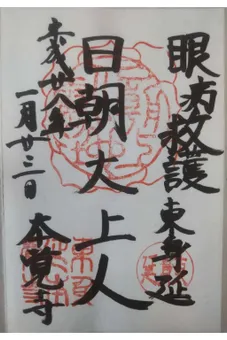 眼病救護 東身延
日朝大上人
平成廿八年
一月廿三日
本覚寺